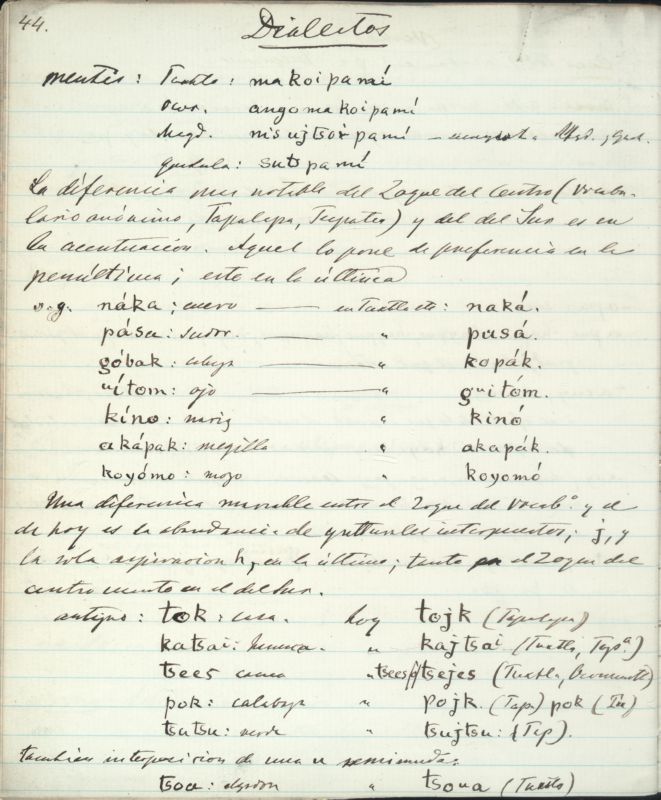 44.
Dialectos
mentir: Tuxtla: makoipamí
ocoz. angomakoipamí
Magd. nisujtsoipamí Magd. y Guad.
guadula: sutspamí
La diferencia mas notable del Zoque del Centro (Vocabu-
lario anónimo, Tapalapa, Tecpatan) y del del Sur es en
la accentuacion. Aquel lo pone de preferencia en la
penúltima; este en la última
v.g. náka; cuero — en Tuxtla etc: naká.
pása: sudor — " pasá.
góbak: cabeza — " kopák.
ᵘítom: ojo — " gᵘitóm.
kíno: nariz " kinó
akápak: megilla " akapák.
koyómo: mojo " koyomó
Una diferencia notable entre el Zoque del Vocabº. y el
de hoy es la abundancia de gutturales interpuestos, j, y
la sola aspiracion h, en la última; tanto en el Zoque del
centro como en el del Sur.
antiguo: tok: casa. hoy tojk (Tapalapa)
katsai: " kajtsaⁱ (Tuxtla, Tapª.)
tsees cama " tsees tsejes (Tuxtla,
pok: calabaza " pojk. (Tap.) pok (Tux)
tsutsu: verde " tsujtsu: (Tap).
tambien interposicion de una u semimuda:
tsoa: algodon " tsoua (Tuxtla)